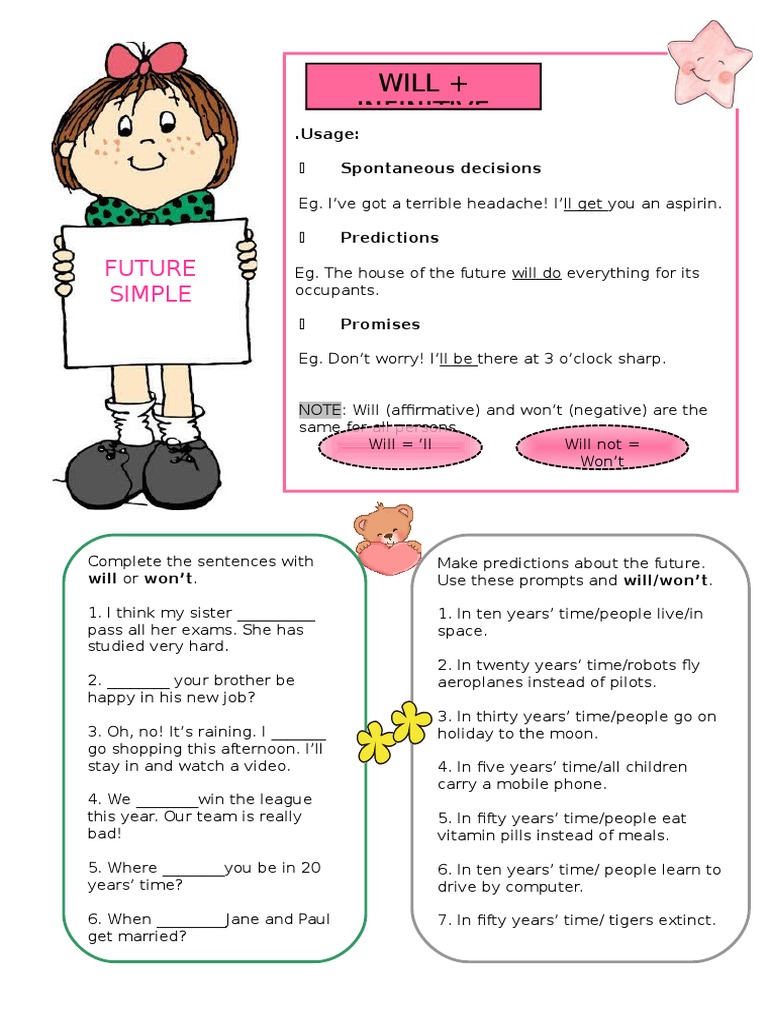 FUTURE
SIMPLE
WILL +
INFINITIVE
.Usage:
Spontaneous decisions
Eg. I’ve got a terrible headache! I’ll get you an aspirin.
Predictions
Eg. The house of the future will do everything for its
occupants.
Promises
Eg. Don’t worry! I’ll be there at 3 o’clock sharp.
NOTE: Will (affirmative) and won’t (negative) are the
same for all persons
Will = ’ll
Will not =
Won’t
Complete the sentences with
will or won’t.
1. I think my sister __________
pass all her exams. She has
studied very hard.
2. ________ your brother be
happy in his new job?
3. Oh, no! It’s raining. I _______
go shopping this afternoon. I’ll
stay in and watch a video.
4. We ________win the league
this year. Our team is really
bad!
5. Where ________you be in 20
years’ time?
6. When _________Jane and Paul
get married?
Make predictions about the future.
Use these prompts and will/won’t.
1. In ten years’ time/people live/in
space.
2. In twenty years’ time/robots fly
aeroplanes instead of pilots.
3. In thirty years’ time/people go on
holiday to the moon.
4. In five years’ time/all children
carry a mobile phone.
5. In fifty years’ time/people eat
vitamin pills instead of meals.
6. In ten years’ time/ people learn to
drive by computer.
7. In fifty years’ time/ tigers extinct.